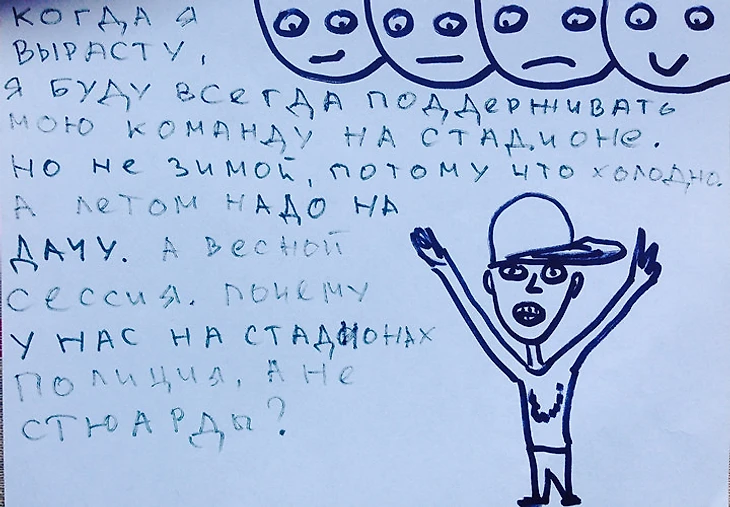 КОГДА Я
ВЫРАСТУ,
Я БУДУ ВСЕГДА ПОДДЕРЖИВАТЬ
МОЮ КОМАНДУ НА СТАДИОНЕ.
НО НЕ ЗИМОЙ, ПОТОМУ ЧТО ХОЛОДНО.
А ЛЕТОМ НАДО НА
ДАЧУ. А ВЕСНОЙ
СЕССИЯ. ПОЧЕМУ
У НАС НА СТАДИОНАХ
ПОЛИЦИЯ, А НЕ
СТЮАРДЫ?